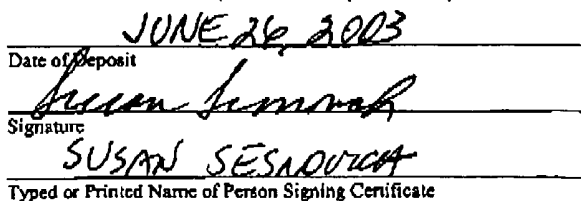 JUNE 26, 2003
Date of Deposit
Susan
Signature
SUSAN
Typed or Printed Name of Person Signing Certificate